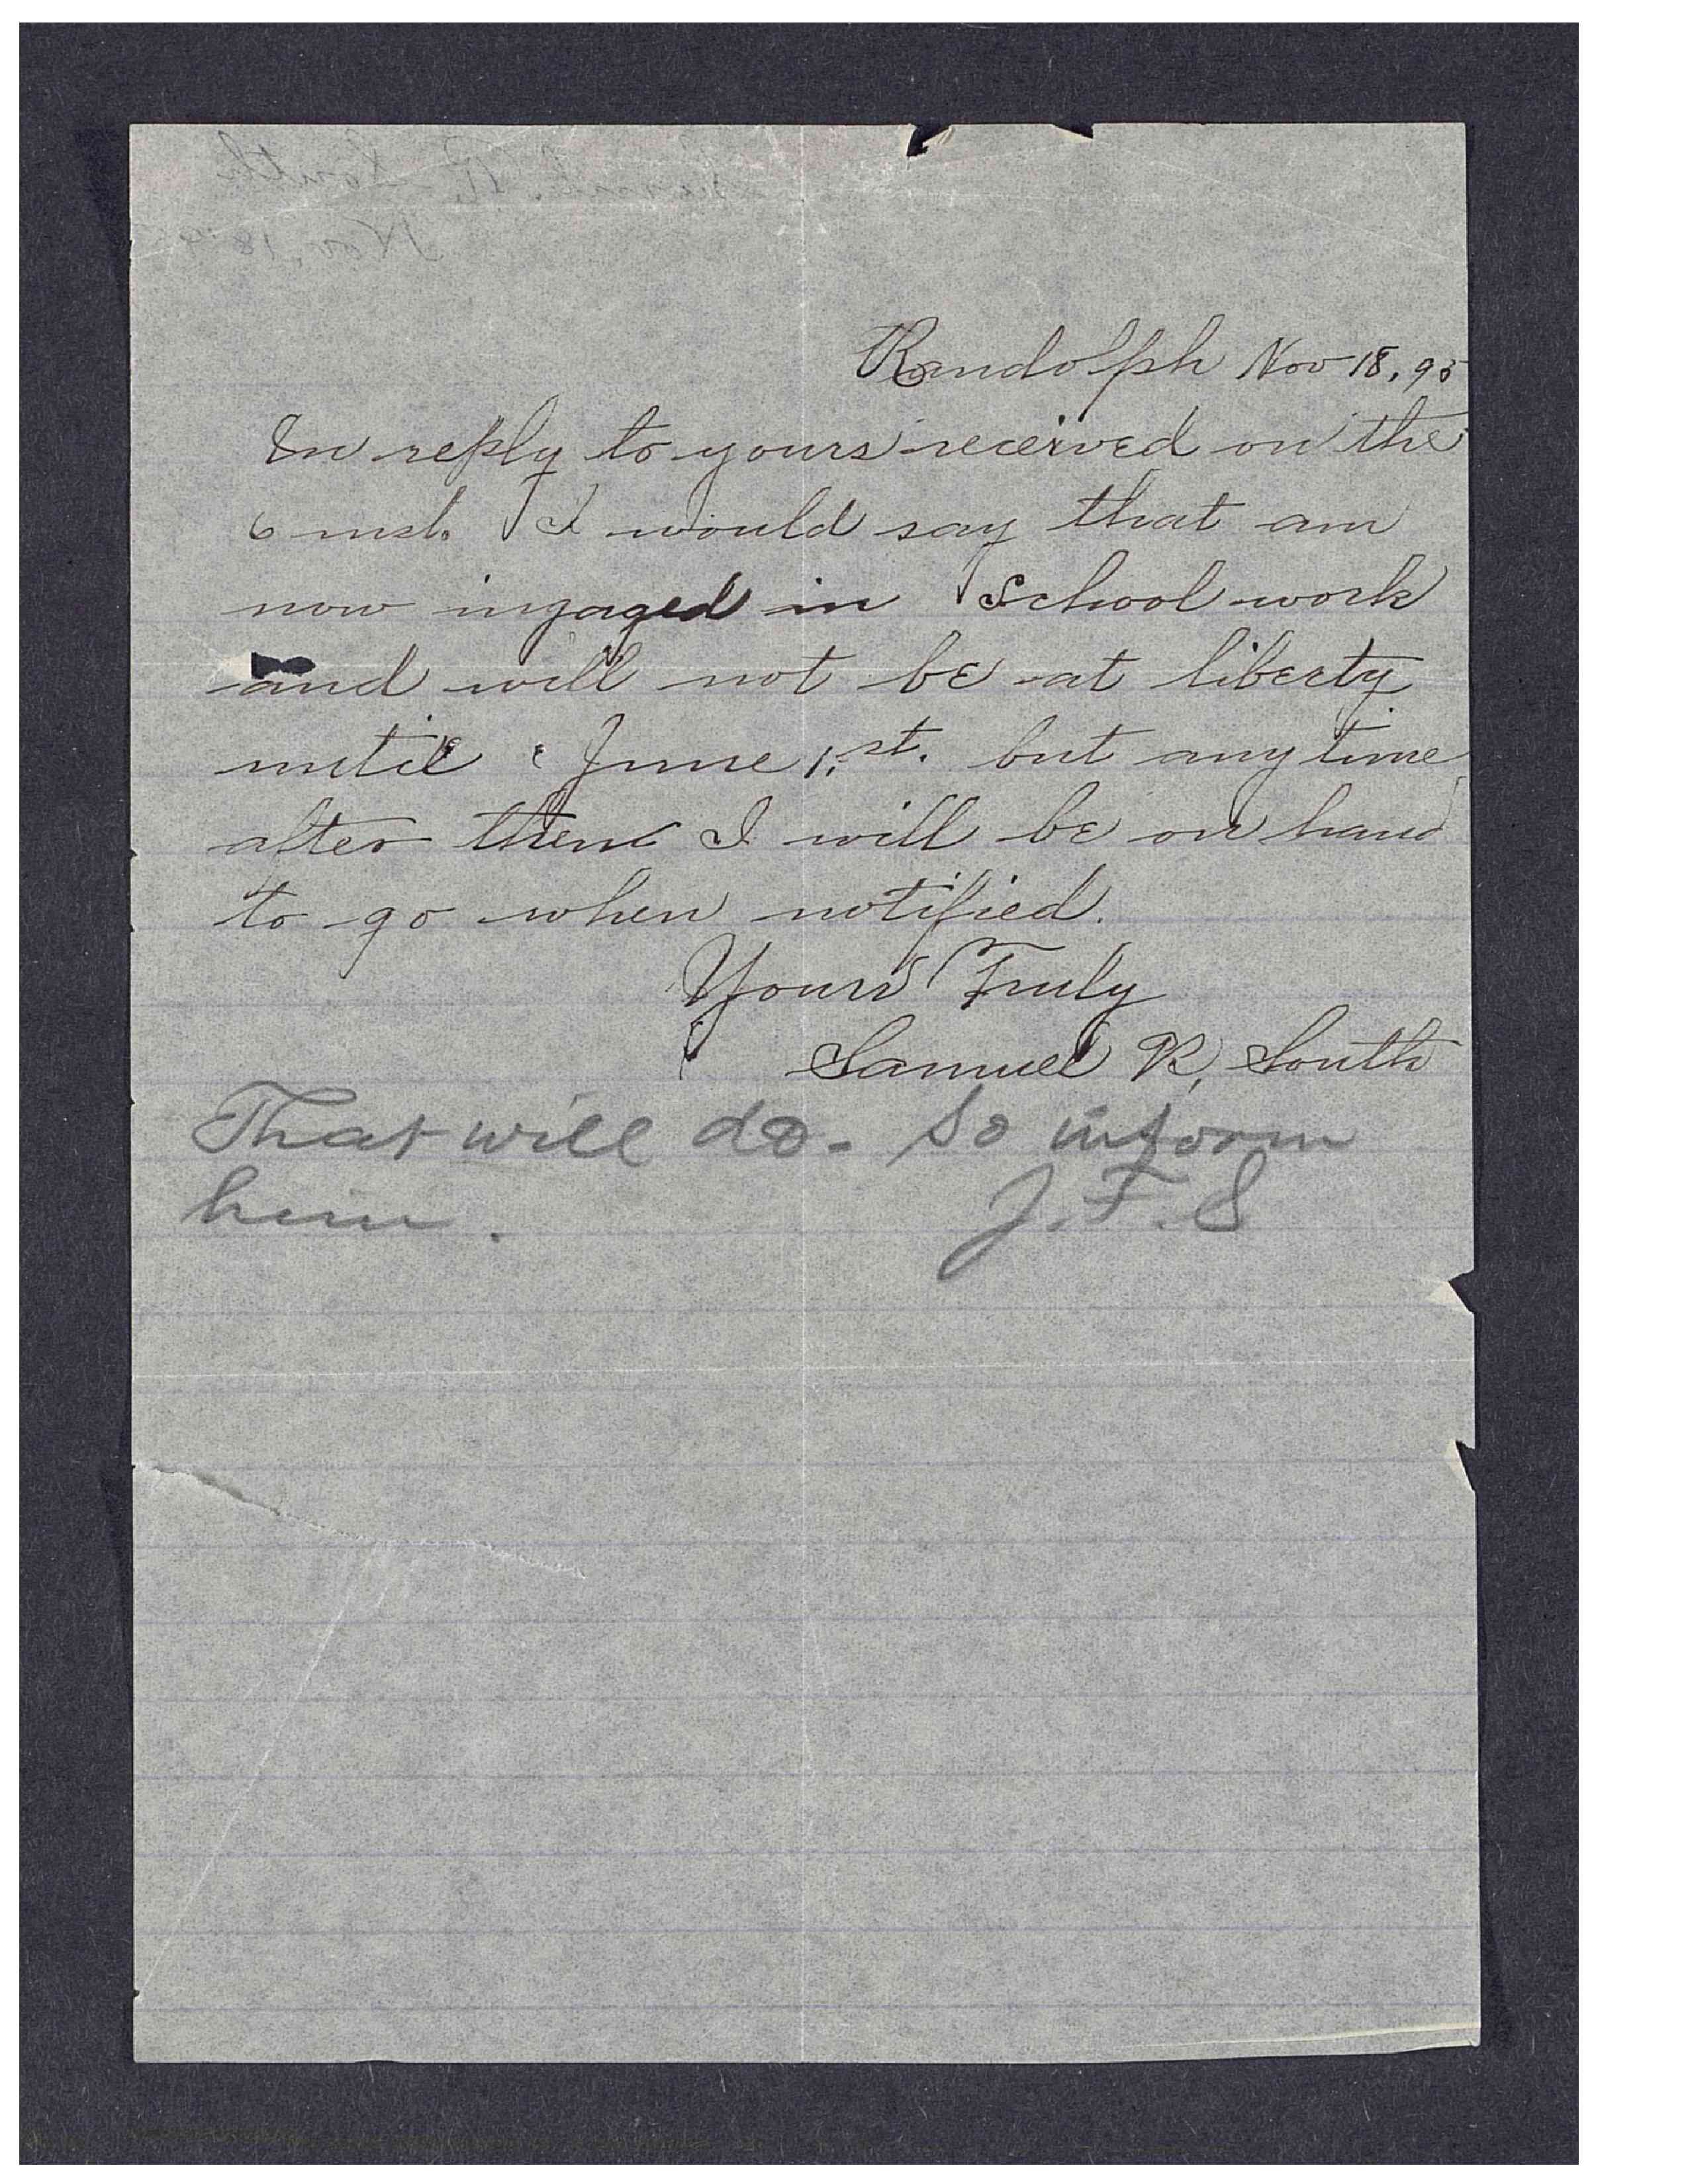 Randolph Nov 18, 95
In reply to yours received on the
6 inst. I would say that am
now ingaged in School work
and will not be at liberty
until June 1,st. but any time
after then I will be on hand
to go when notified.
Yours Truly
Samuel R, South
That will do. So inform
him. J. F. S